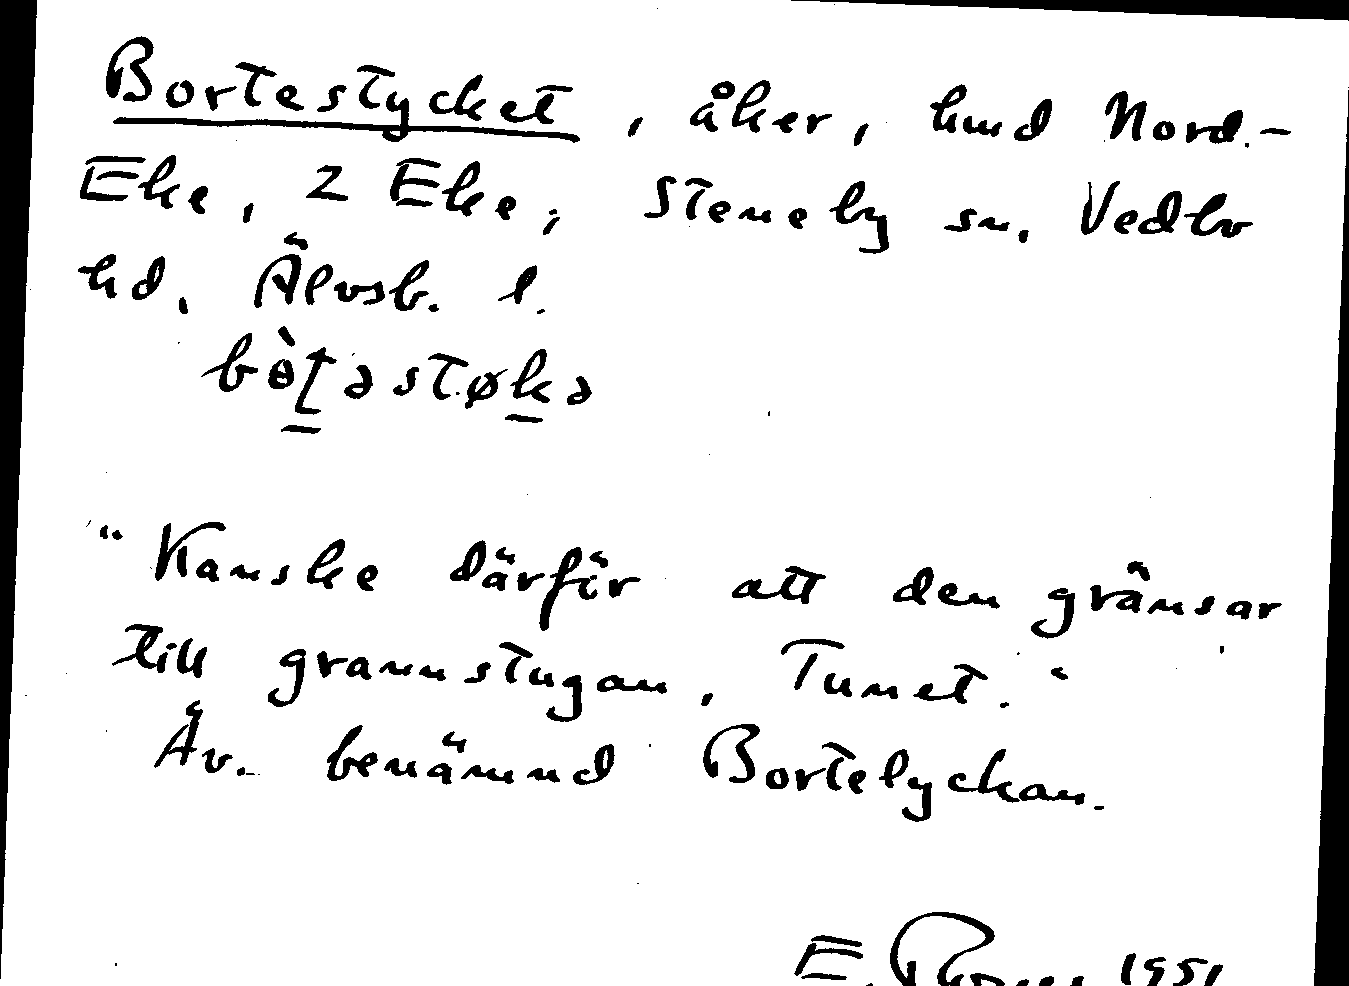 Bortestycket, åker, hmd Nord.-
Eke, 2 Eke, Steneby sn. Vedbo
hd. Älvsb. l.
bɵ̀t̲əstøk̲ə
"Kanske därför att den gränsar
till grannstugan, Tunet."
Äv. benämnd Bortelyckan.
E. 1951